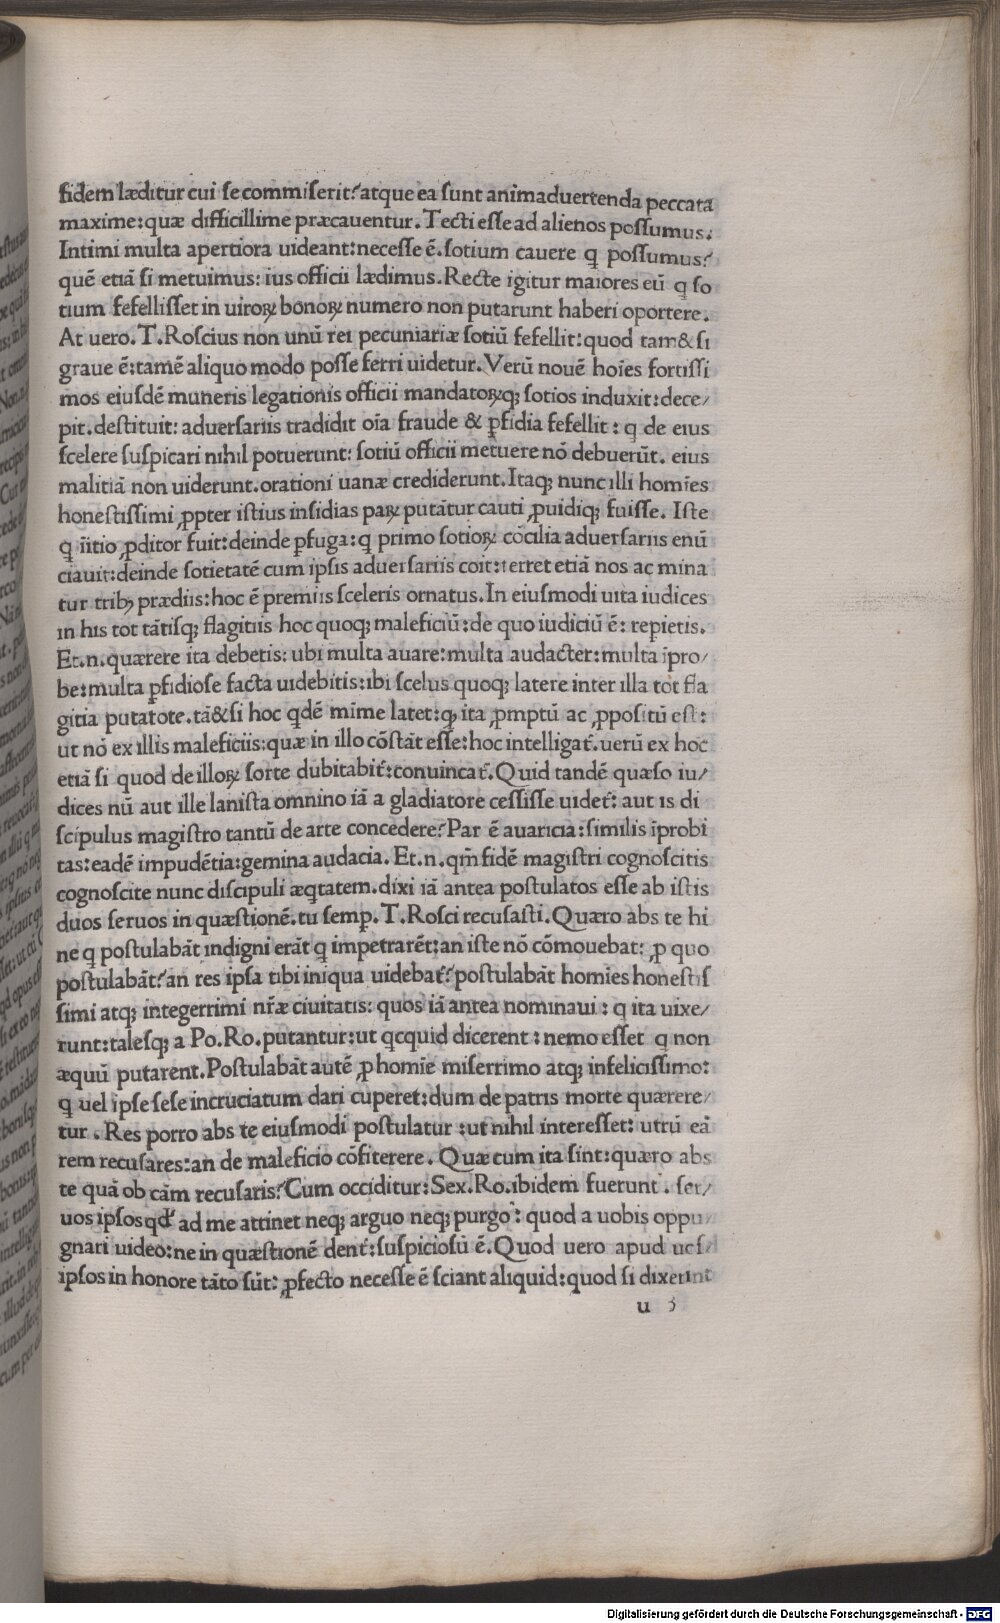 fidem læditur cui se commiserit? atque ea sunt animaduertenda peccata
maxime: quæ difficillime præcauentur. Tecti esse ad alienos possumus.
Intimi multa apertiora uideant: necesse ē. sotium cauere ꝗ possumus?
quē etiā si metuimus: ius officii lædimus. Recte igitur maiores eū ꝗ so
tium fefellisset in uiroꝝ bonoꝝ numero non putarunt haberi oportere.
At uero. T. Roscius non unū rei pecuniariæ sotiū fefellit: quod tam&si
graue ē: tamē aliquo modo posse ferri uidetur. Verū nouē hoīes fortissi
mos eiusdē muneris legationis officii mandatoꝝq; sotios induxit: dece/
pit. destituit: aduersariis tradidit oīa fraude & ꝑfidia fefellit: ꝗ de eius
scelere suspicari nihil potuerunt: sotiū officii metuere nō debuerūt. eius
malitiā non uiderunt. orationi uanæ crediderunt. Itaq; nunc illi homīes
honestissimi ꝓpter istius insidias paꝝ putātur cauti ꝓuidiq; fuisse. Iste
ꝗ iītio ꝓditor fuit: deinde ꝑfuga: ꝗ primo sotioꝝ cōcilia aduersariis enū
ciauit: deinde sotietatē cum ipsis aduersariis coit: terret etiā nos ac mina
tur tribꝫ prædiis: hoc ē premiis sceleris ornatus. In eiusmodi uita iudices
in his tot tātisq; flagitiis hoc quoq; maleficiū: de quo iudiciū ē: repietis.
Et. n. quærere ita debetis: ubi multa auare: multa audacter: multa īpro/
be: multa ꝑfidiose facta uidebitis: ibi scelus quoq; latere inter illa tot fla
gitia putatote. tā&si hoc qdē mīme latet: ꝙ ita ꝓmptū ac ꝓpositū est:
ut nō ex illis maleficiis: quæ in illo cōstāt esse: hoc intelligat̄. uerū ex hoc
etiā si quod de illoꝝ sorte dubitabit̄: conuincat̄. Quid tandē quæso iu/
dices nū aut ille lanista omnino iā a gladiatore cessisse uidet̄: aut is di
scipulus magistro tantū de arte concedere? Par ē auaricia: similis īprobi
tas: eadē impudētia: gemina audacia. Et. n. qm̄ fidē magistri cognoscitis
cognoscite nunc discipuli æqtatem. dixi iā antea postulatos esse ab istis
duos seruos in quæstionē. tu semꝑ. T. Rosci recusasti. Quæro abs te hi
ne ꝗ postulabāt indigni erāt ꝗ impetrarēt: an iste nō cōmouebat: ꝓ quo
postulabāt? an res ipsa tibi iniqua uidebat̄? postulabāt homīes honestis
simi atq; integerrimi nr̄æ ciuitatis: quos iā antea nominaui: ꝗ ita uixe/
runt: talesq; a Po. Ro. putantur: ut qcquid dicerent: nemo esset ꝗ non
æquū putarent. Postulabāt autē ꝓ homīe miserrimo atq; infelicissimo:
ꝗ uel ipse sese incruciatum dari cuperet: dum de patris morte quærere/
tur. Res porro abs te eiusmodi postulatur: ut nihil interesset: utrū eā
rem recusares: an de maleficio cōfiterere. Quæ cum ita sint: quæro abs
te quā ob cām recusaris? Cum occiditur: Sex. Ro. ibidem fuerunt. ser/
uos ipsos qđ ad me attinet neq; arguo neq; purgo: quod a uobis oppu/
gnari uideo: ne in quæstionē dent̄: suspiciosū ē. Quod uero apud uos/
ipsos in honore tāto sūt: ꝓfecto necesse ē sciant aliquid: quod si dixerint
u 3
Digitalisierung gefördert durch die Deutsche Forschungsgemeinschaft - DFG